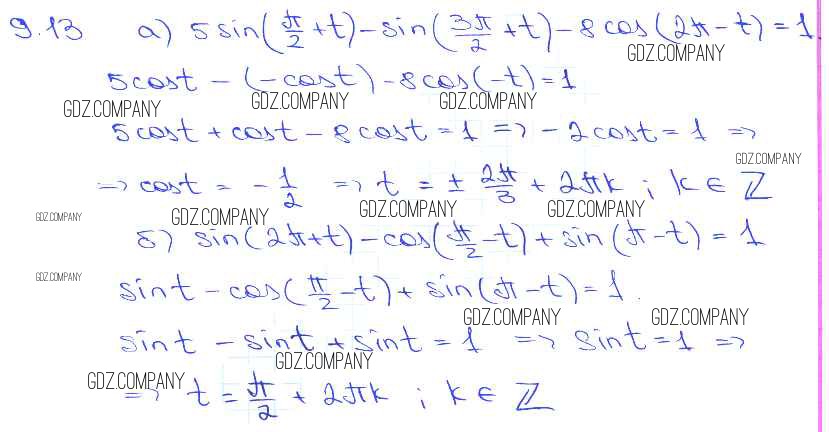 9.13 а) 5 sin(π/2 + t) - sin(3π/2 + t) - 8 cos(2π - t) = 1
GDZ.COMPANY
5 cos t - (-cos t) - 8 cos(-t) = 1
GDZ.COMPANY GDZ.COMPANY GDZ.COMPANY
5 cos t + cos t - 8 cos t = 1 => -2 cos t = 1 =>
GDZ.COMPANY
=> cos t = - 1/2 => t = ± 2π/3 + 2πk ; k ∈ ℤ
GDZ.COMPANY GDZ.COMPANY GDZ.COMPANY GDZ.COMPANY
б) sin(2π + t) - cos(π/2 - t) + sin(π - t) = 1
GDZ.COMPANY
sin t - cos(π/2 - t) + sin(π - t) = 1.
GDZ.COMPANY GDZ.COMPANY
sin t - sin t + sin t = 1 => sin t = 1 =>
GDZ.COMPANY
GDZ.COMPANY
=> t = π/2 + 2πk ; k ∈ ℤ